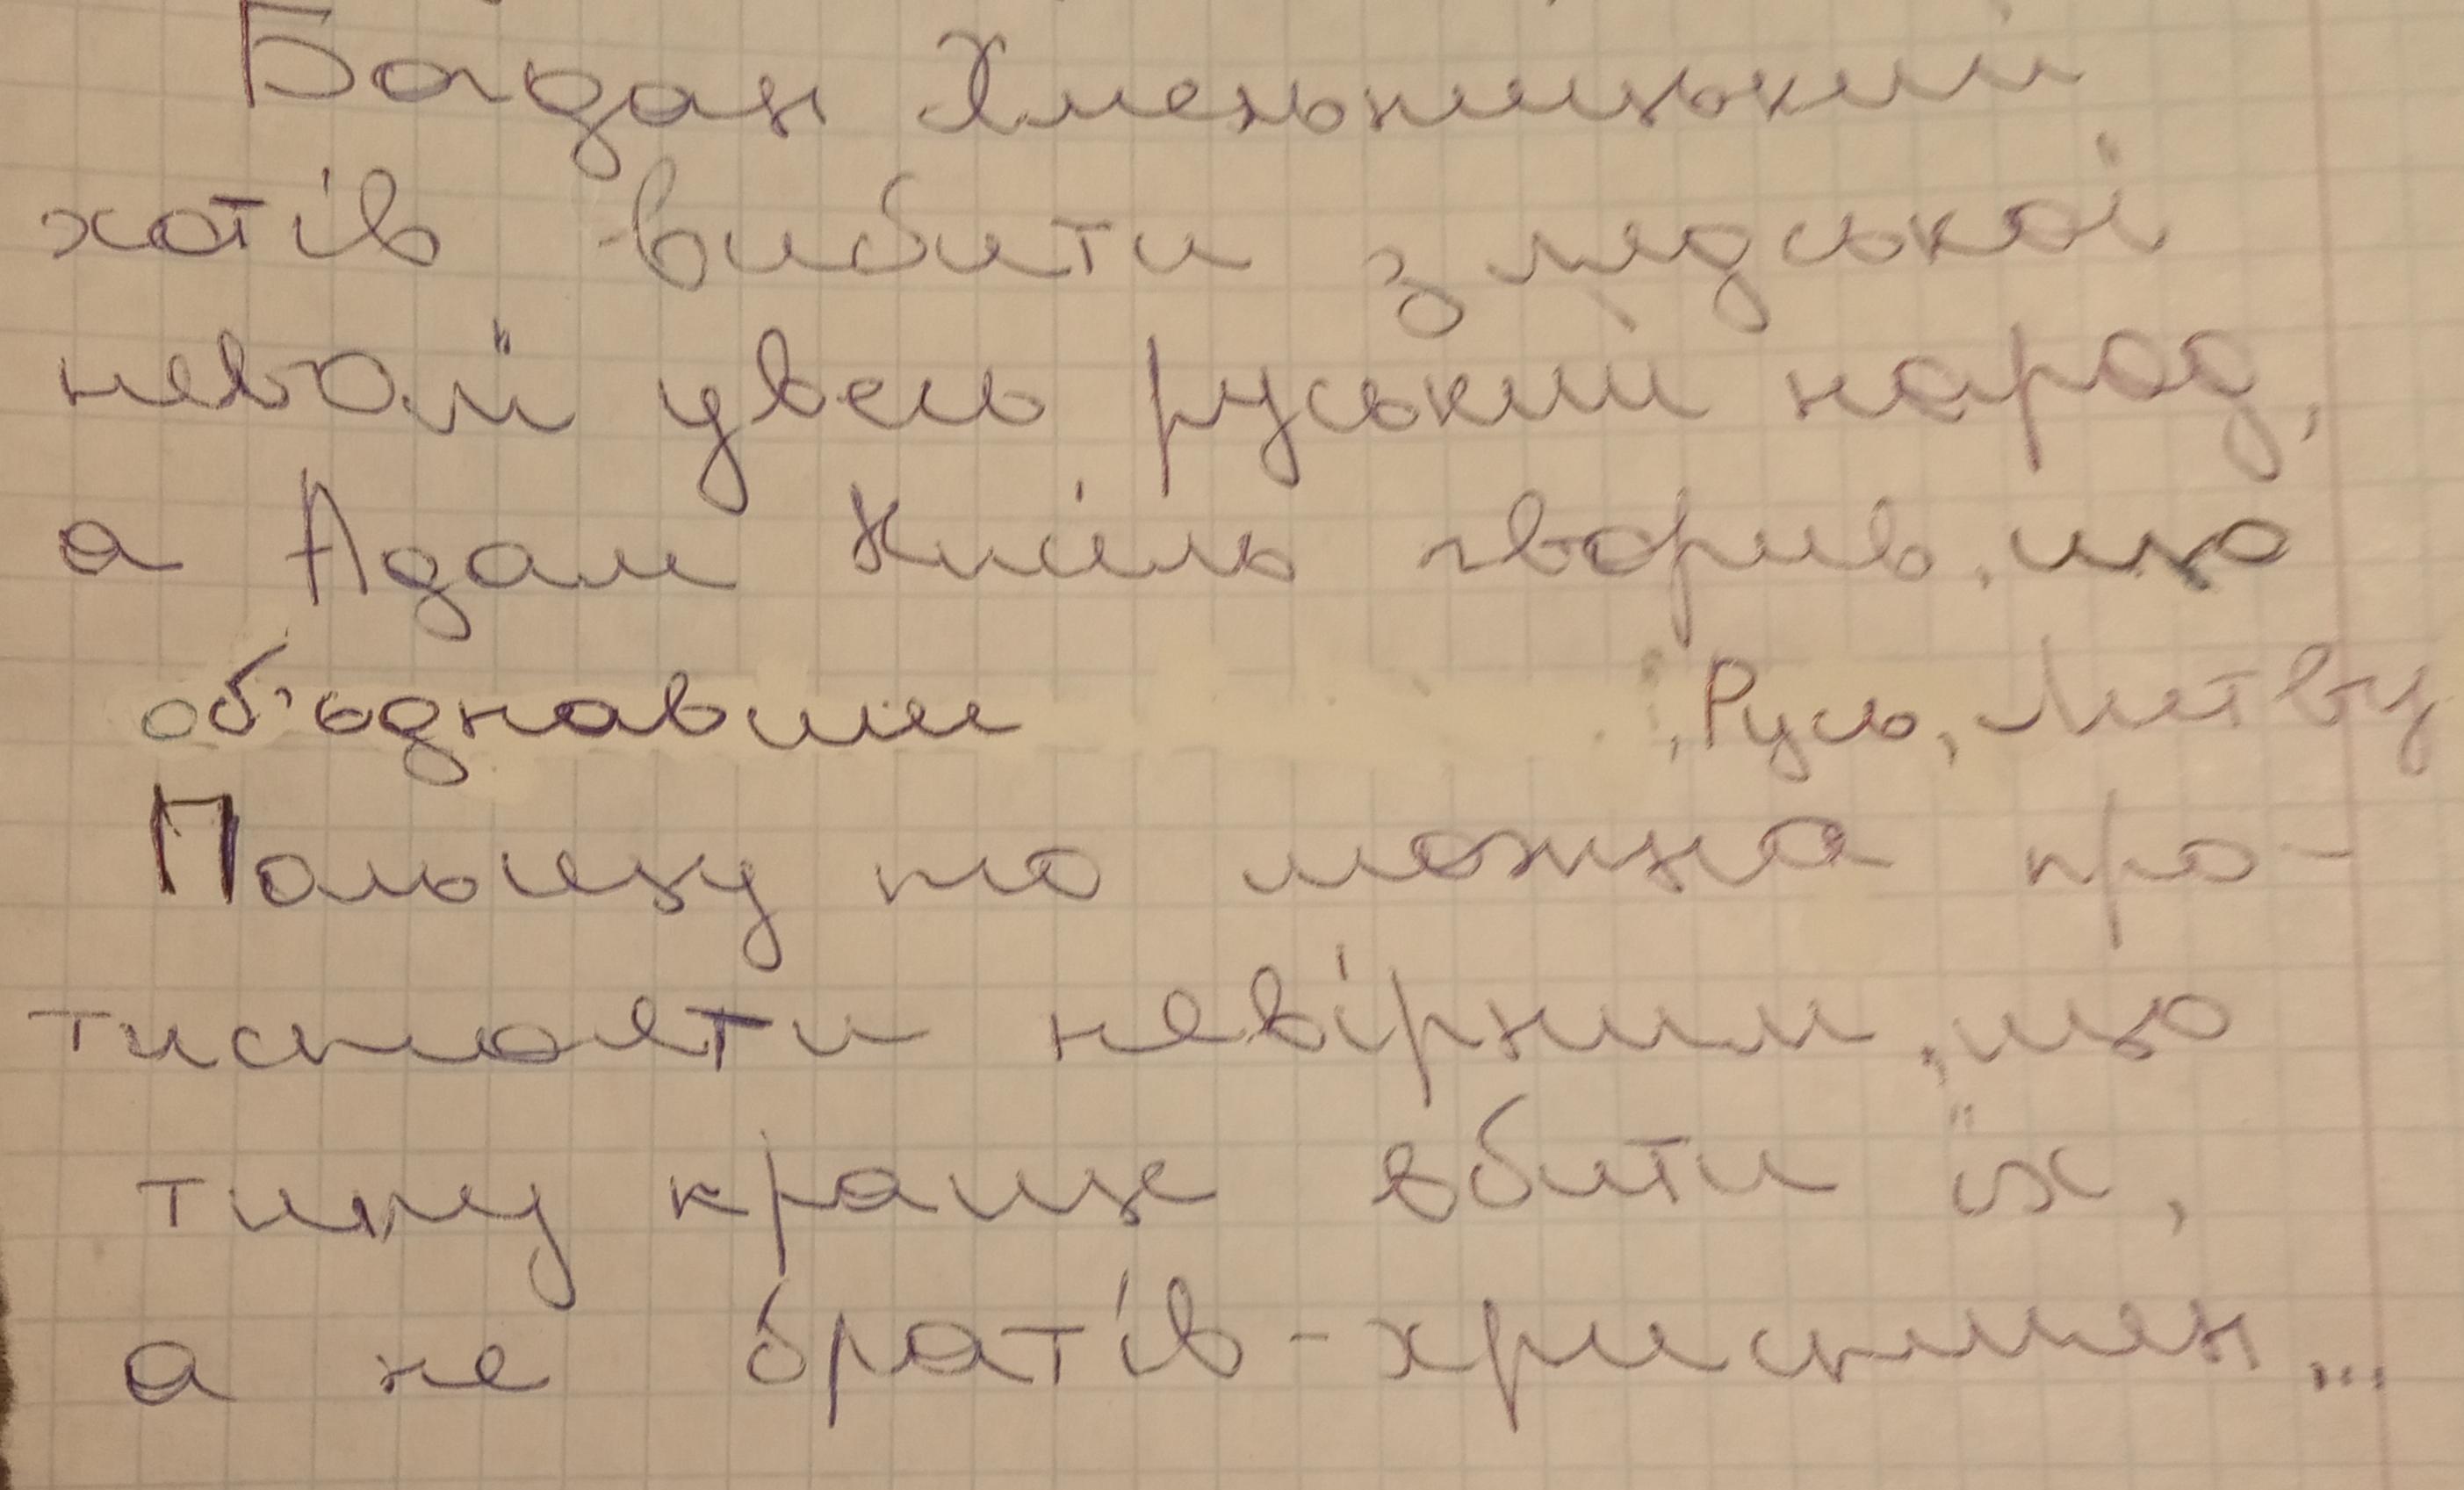 Богдан Хмельницький
хотів вибити з лядської
неволї увесь руський народ,
а Адам Кисіль гворив, що
об'єднавши , Русь, Литву
Польщу то можна про-
тистояти невірним, що
типу краще вбити їх,
а не братів-християн...